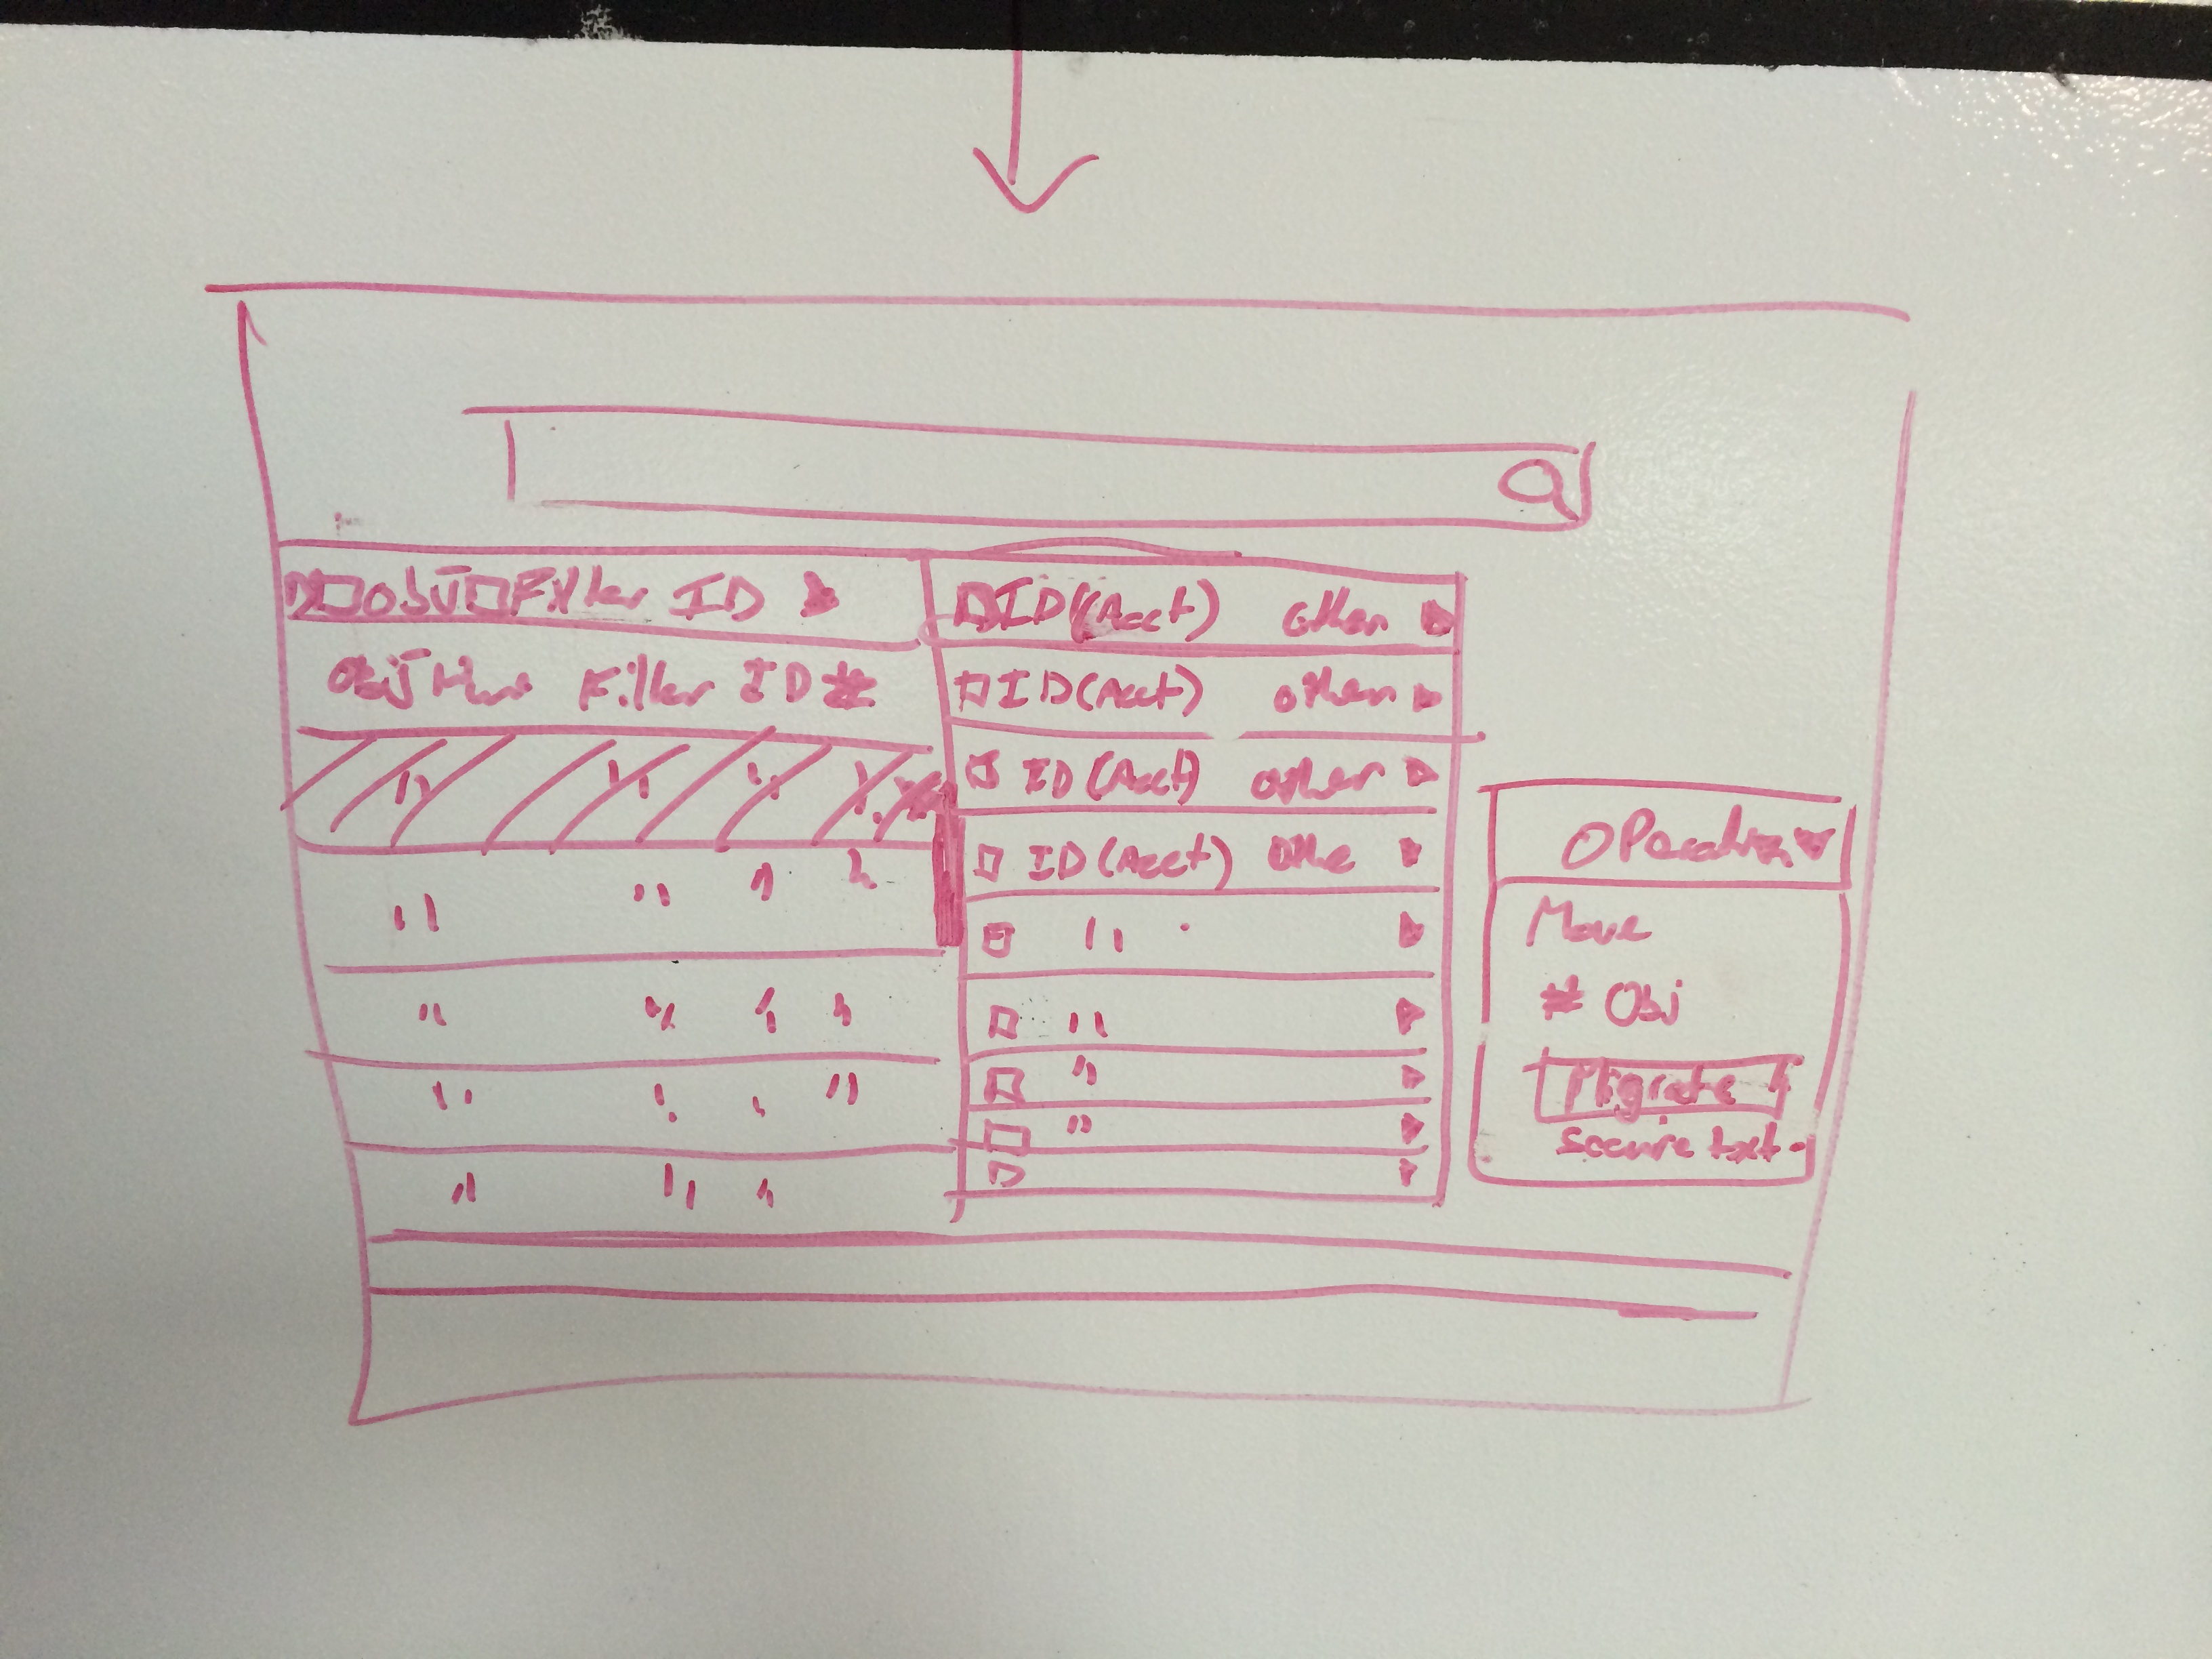 Obj Filler ID
Obj Filler ID #
ID (Acct) other
ID (Acct) other
ID (Acct) other
ID (Acct) Othe
"
"
"
"
Operation
Move
# Obj
Migrate
secure txt.